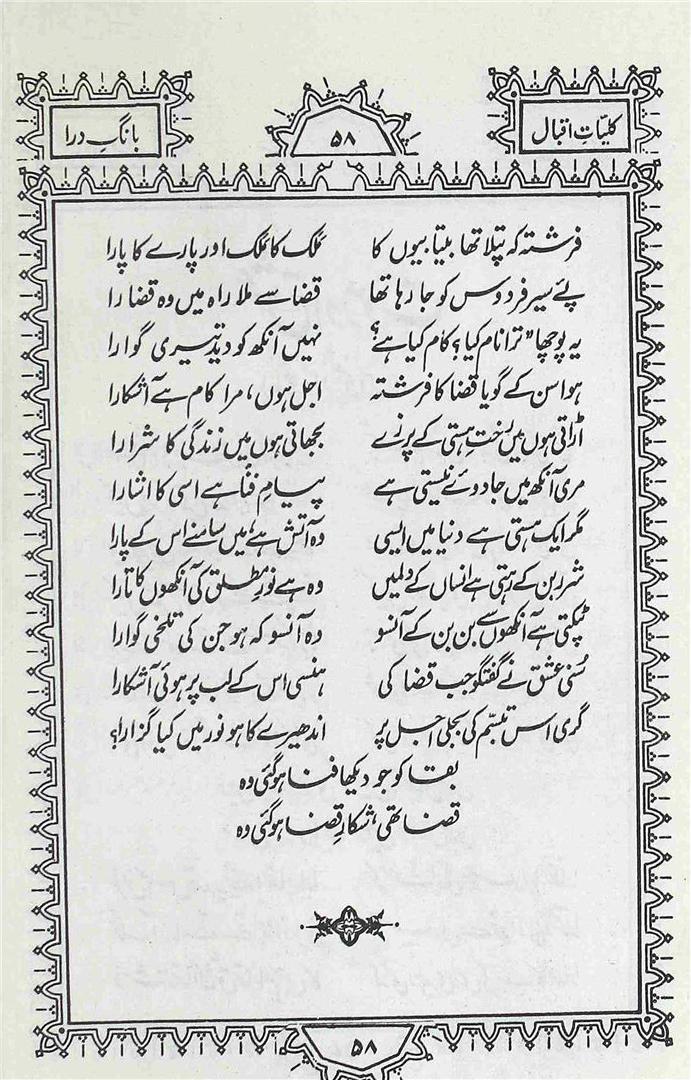 کلیّاتِ اقبال
۵۸
بانگِ درا
فرشتہ کہ پتلا تھا بیتابیوں کا ملک کا ملک اور پارے کا پارا
پئے سیرِ فردوس کو جا رہا تھا قضا سے ملا راہ میں وہ قضا را
یہ پوچھا ”ترا نام کیا؟ کام کیا ہے؟ نہیں آنکھ کو دید تیری گوارا
ہوا سن کے گویا قضا کا فرشتہ اجل ہوں، مرا کام ہے آشکارا
اڑاتی ہوں میں رختِ ہستی کے پرزے بجھاتی ہوں میں زندگی کا شرارا
مری آنکھ میں جادوئے نیستی ہے پیامِ فنا ہے اسی کا اشارا
مگر ایک ہستی ہے دنیا میں ایسی وہ آتش ہے، میں سامنے اس کے پارا
شرر بن کے رہتی ہے انساں کے دل میں وہ ہے نورِ مطلق کی آنکھوں کا تارا
ٹپکتی ہے آنکھوں سے بن بن کے آنسو وہ آنسو کہ ہو جن کی تلخی گوارا
سُنی عشق نے گفتگو جب قضا کی ہنسی اس کے لب پر ہوئی آشکارا
گری اس تبسّم کی بجلی اجل پر اندھیرے کا ہو نور میں کیا گزارا؟
بقا کو جو دیکھا فنا ہو گئی وہ
قضا تھی، شکارِ قضا ہو گئی وہ
۵۸